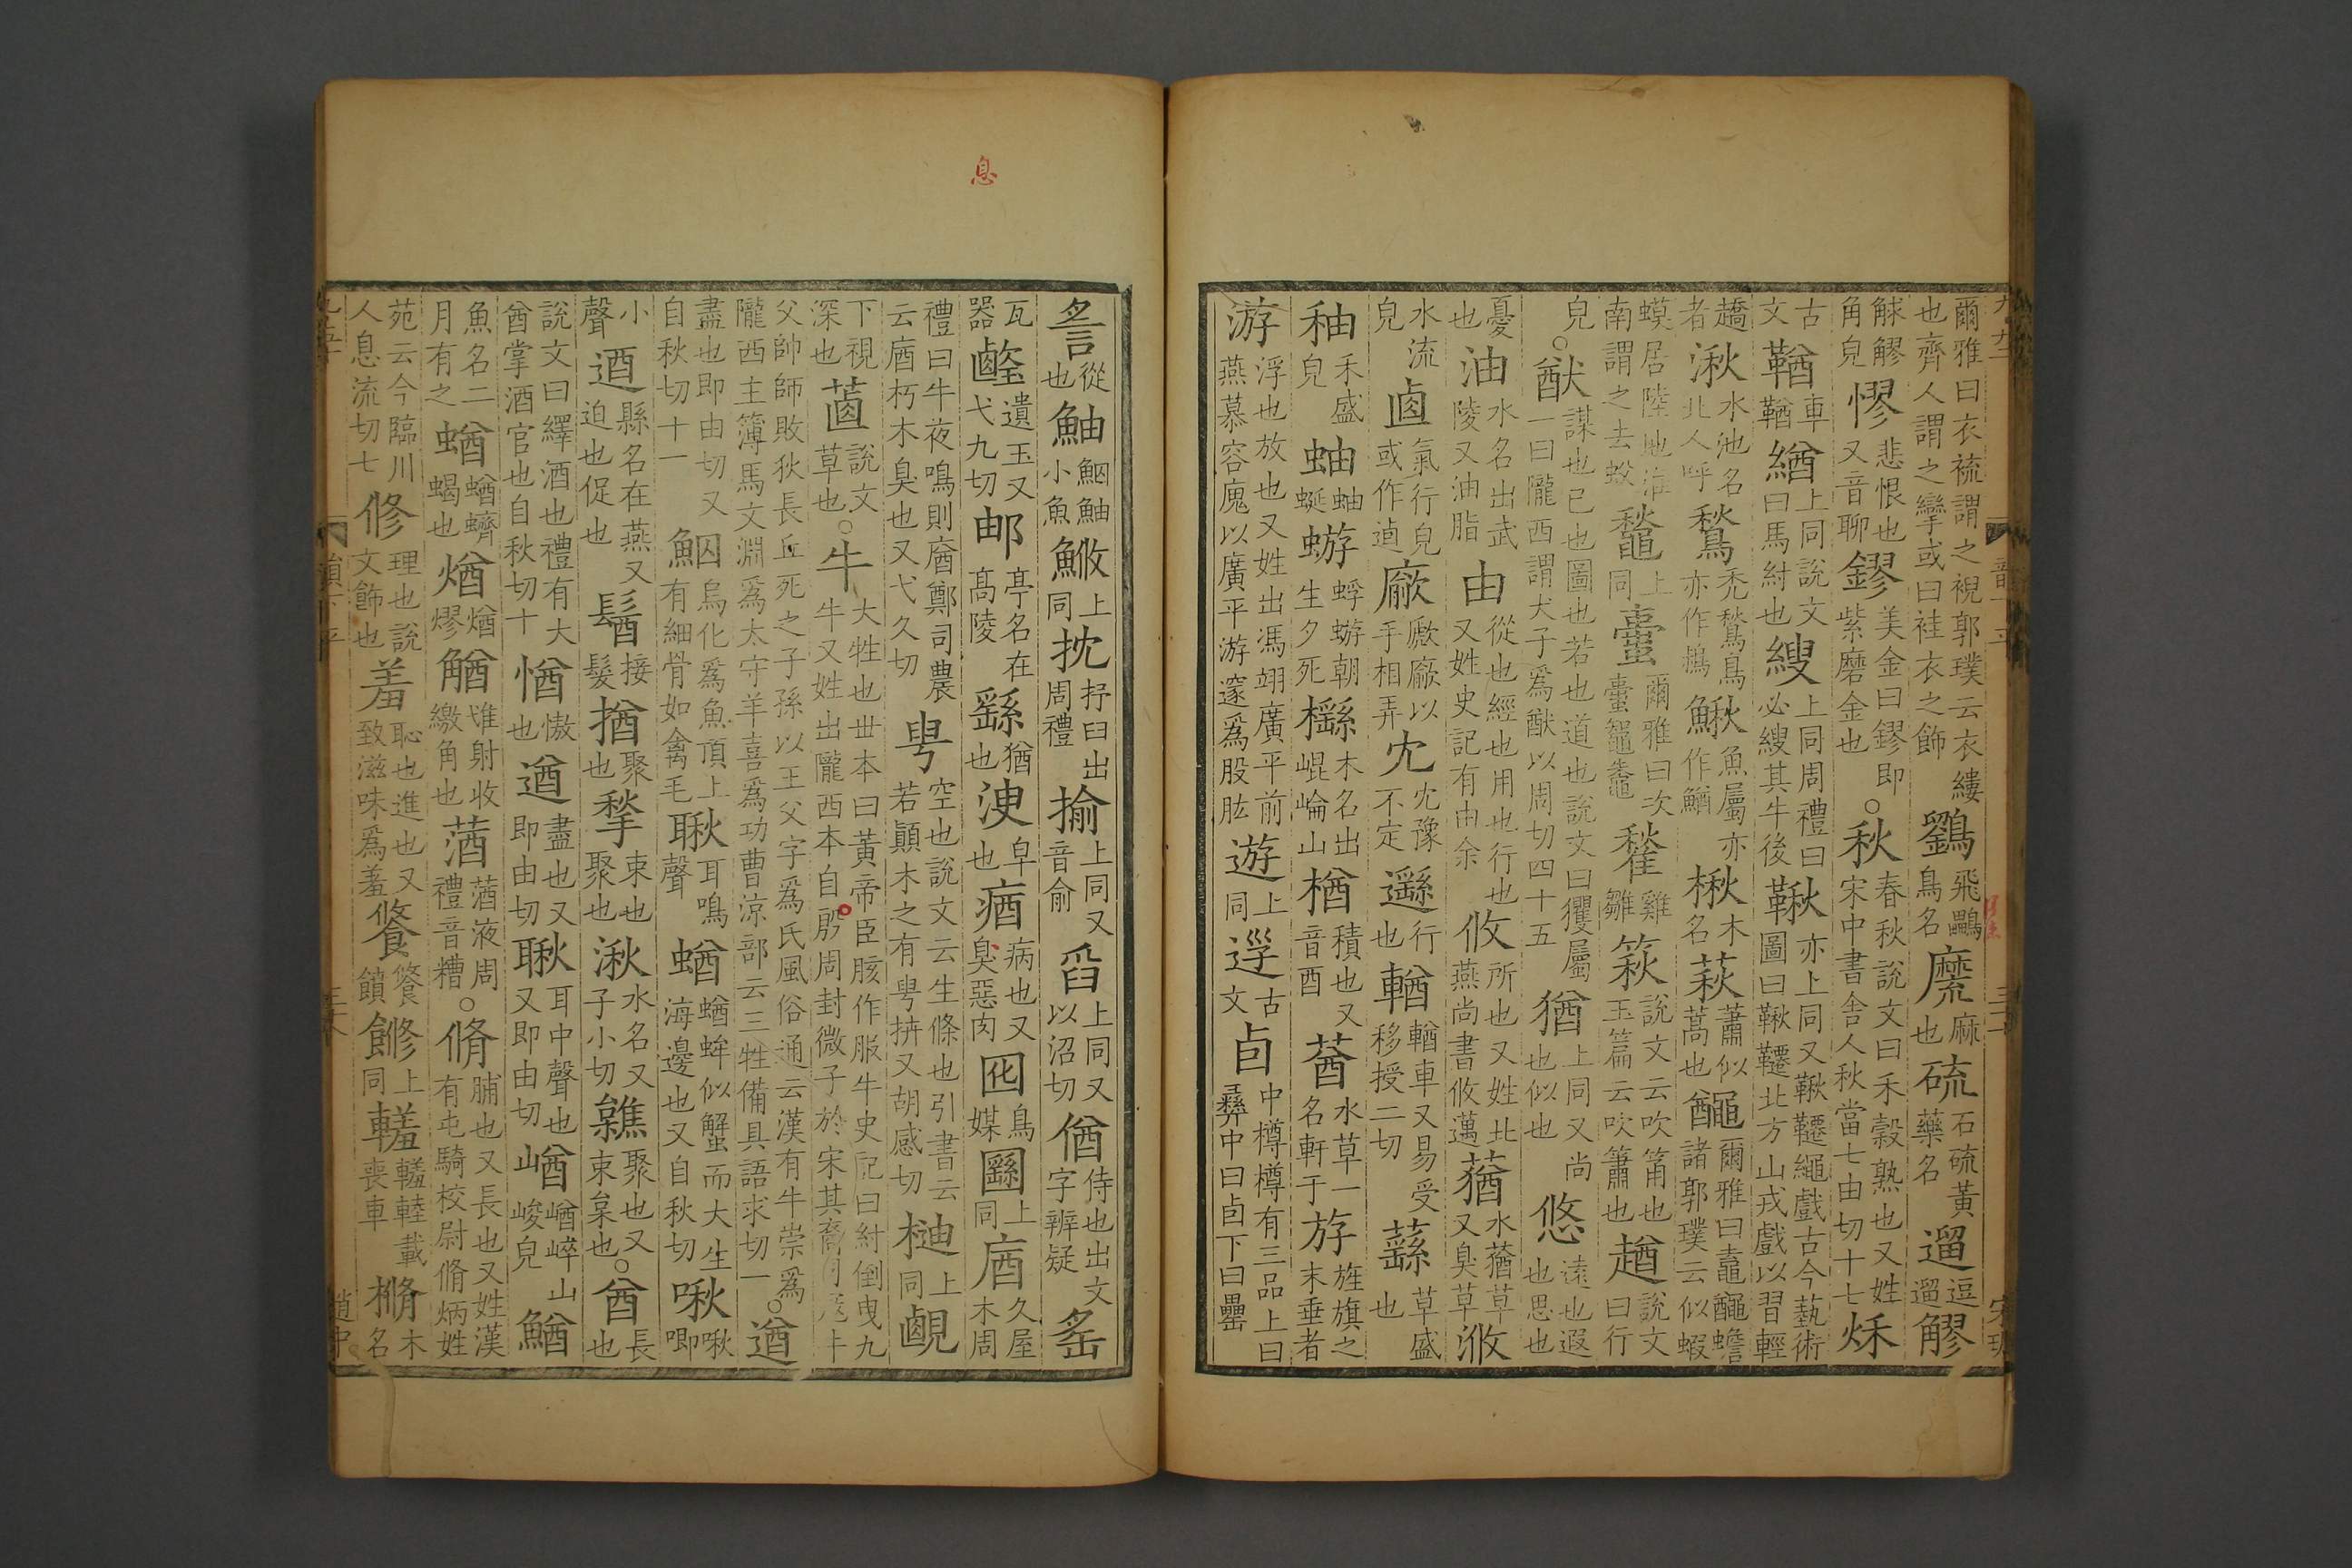 爾雅曰衣裗謂之䙚郭璞云衣縷也齊人謂之攣或曰袿衣之飾飛鸓鳥名麻也硫石硫黃藥名遛逗遛觮
觩觮角皃憀悲恨也又音聊鏐美金曰鏐即紫磨金也○秋春秋說文曰禾穀熟也又姓宋中書舍人秋當七由切十七秌
古文鞧車鞧緧上同說文曰馬紂也緵上同周禮曰必緵其牛後鞦亦上同又鞦韆繩戲古今藝術圖曰鞦韆北方山戎戲以習輕
趫者湫水池名北人呼鶖禿鶖鳥亦作䳺鰍魚屬亦作鰌楸木名萩蕭似蒿也䤘爾雅曰鼁䤘蟾諸郭璞云似蝦
蟆居陸地淮南謂之去蚁䆋上同䗫爾雅曰次䗫鼅鼄䨂雞雛䈲說文云吹筩也玉篇云吹簫也趥說文曰行
皃○猷謀也已也圖也若也道也說文曰玃屬一曰隴西謂犬子爲猷以周切四十五猶上同又尚也似也悠遠也遐也思也
憂也油水名出武陵又油脂由從也經也用也行也又姓史記有由余攸所也又姓北燕尚書攸邁蕕水蕕草又臭草浟
水流皃𠧴氣行皃或作逌㾞歋㾞以手相弄冘冘豫不定遥行也輶輶車又易受移授二切蘨草盛也
秞禾盛皃蚰蚰蜒蝣蜉蝣朝生夕死櫾木名出崐崘山楢積也又音酉蕕水草一名軒于斿旌旗之末垂者
游浮也放也又姓出馮翊廣平前燕慕容廆以廣平游邃爲股肱遊上同逕古文卣中樽樽有三品上曰彞中曰卣下曰罍
䚻從也鮋䱂鮋小魚䱛上同抭抒臼出周禮揄上同又音俞舀上同又以沼切偤侍也出文字辨疑䍃
瓦器䃋遺玉又弋九切邮亭名在高陵繇猶也洩皁也㾞病也又臭惡肉囮鳥媒圝上同庮久屋木周
禮曰牛夜鳴則庮鄭司農云庮朽木臭也又弋久切甹空也說文云生條也引書云若顚木之有甹㭴又胡感切㮋上同䚃
下視深也蓾說文草也○牛大牲也世本曰黃帝臣胲作服牛史記曰紂倒曳九牛又姓出隴西本自殷周封微子於宋其裔
父帥師敗狄長丘死之子孫以王父字爲氏風俗通云漢有牛崇爲隴西主簿馬文淵爲太守羊喜爲功曹涼部云三牲備具語求切一○遒
盡也即由切又自秋切十一䱂烏化爲魚頂上有細骨如禽毛瞅耳鳴聲蝤蝤蛑似蟹而大生海邊也又自秋切啾啾唧
小聲逎縣名在燕又迫也促也鬏接髮揂聚也揫束也聚也湫水名又子小切雥聚也又束枲也○酋長也
說文曰繹酒也禮有大酋掌酒官也自秋切十㥢慠也遒盡也又即由切聎耳中聲也又即由切崷崷崒山峻皃鰌
魚名二月有之蝤蝤蠐蝎也煪煪熮䚇惟射收繳角也䔏䔏液周禮音糟○脩脯也又長也又姓漢有屯騎校尉脩炳姓
苑云今臨川人息流切七修理也說文飾也羞恥也進也又致滋味爲羞餐饙䭀上同䡭䡭䡜載喪車樇木名
息